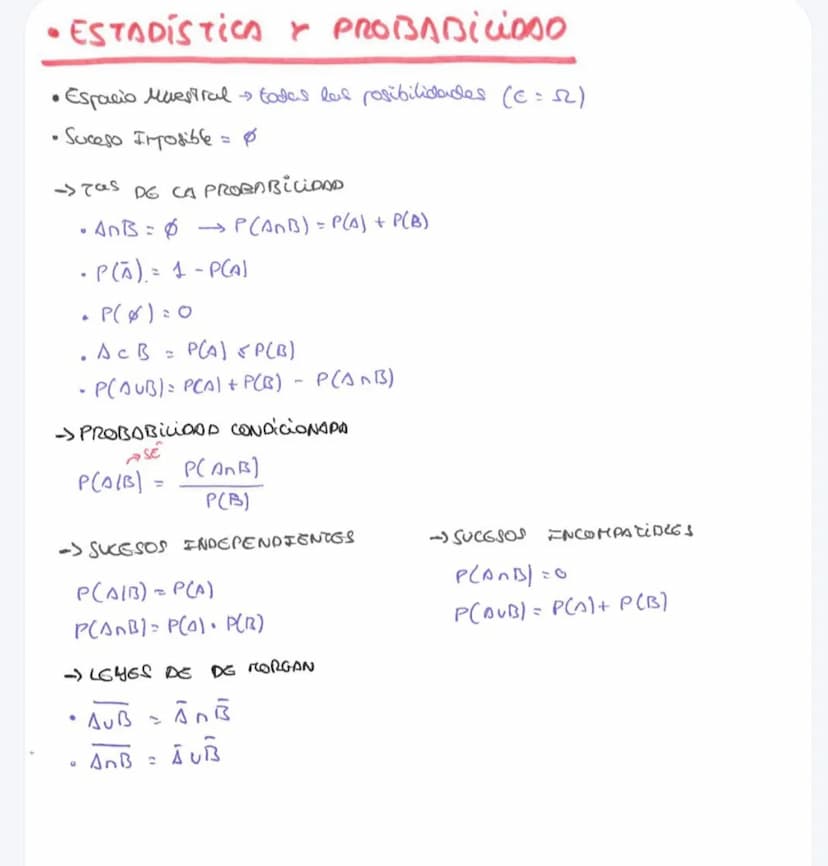 • ESTADÍSTICA Y PROBABILIDAD
• Espacio Muestral → todas las posibilidades (E = Ω)
• Suceso Imposible = ∅
→ Tas DE LA PROBABILIDAD
• A∩B = ∅ → P(A∩B) = P(A) + P(B)
• P(Ā) = 1 - P(A)
• P(∅) = 0
• A ⊂ B = P(A) ≤ P(B)
• P(A∪B) = P(A) + P(B) - P(A∩B)
→ PROBABILIDAD CONDICIONADA
→ SÉ
P(A/B) = P(A∩B) / P(B)
→ SUCESOS INDEPENDIENTES
P(A/B) = P(A)
P(A∩B) = P(A) · P(B)
→ SUCESOS INCOMPATIBLES
P(A∩B) = 0
P(A∪B) = P(A) + P(B)
→ LEYES DE DE MORGAN
• A̅∪̅B̅ = Ā ∩ B̄
• A̅∩̅B̅ = Ā ∪ B̄